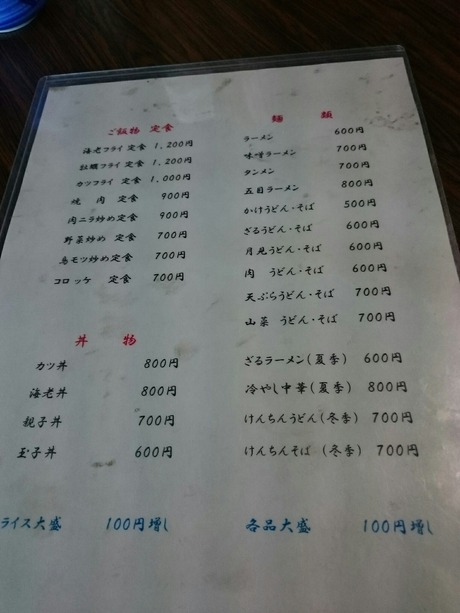 ご飯物 定食
海老フライ 定食 1,200円
牡蠣フライ 定食 1,200円
カツフライ 定食 1,000円
焼 肉 定食 900円
肉ニラ炒め定食 900円
野菜炒め 定食 700円
鳥モツ炒め定食 700円
コロッケ 定食 700円
丼 物
カツ丼 800円
海老丼 800円
親子丼 700円
玉子丼 600円
ライス大盛 100円増し
麺 類
ラーメン 600円
味噌ラーメン 700円
タンメン 700円
五目ラーメン 800円
かけうどん・そば 500円
ざるうどん・そば 600円
月見うどん・そば 600円
肉 うどん・そば 600円
天ぷらうどん・そば 700円
山菜 うどん・そば 700円
ざるラーメン(夏季) 600円
冷やし中華(夏季) 800円
けんちんうどん(冬季) 700円
けんちんそば (冬季) 700円
各品大盛 100円増し